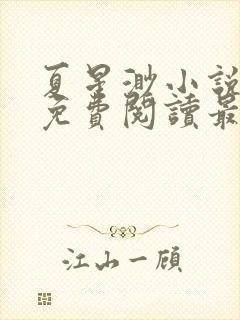 夏星渺小說
免費閱讀最
江山一顧